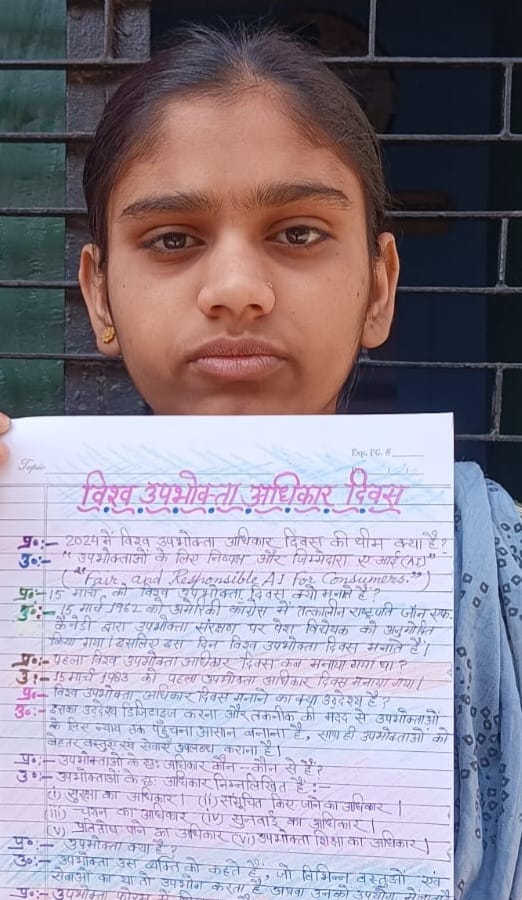 Topic
Exp. PG. #
विश्व उपभोक्ता अधिकार दिवस
प्र०:- 2024 में विश्व उपभोक्ता अधिकार दिवस की थीम क्या है?
उ०:- "उपभोक्ताओं के लिए निष्पक्ष और जिम्मेदारा ए आई (AI)"
("Fair and Responsible AI for Consumers.")
प्र०:- 15 मार्च को विश्व उपभोक्ता दिवस क्यों मनाते हैं?
उ०:- 15 मार्च 1962 को अमेरिकी कांग्रेस में तत्कालीन राष्ट्रपति जॉन एफ.
कैनेडी द्वारा उपभोक्ता संरक्षण पर पेश विधेयक को अनुमोदित
किया गया। इसलिए इस दिन विश्व उपभोक्ता दिवस मनाते हैं।
प्र०:- पहला विश्व उपभोक्ता अधिकार दिवस कब मनाया गया था?
उ०:- 15 मार्च 1983 को पहला उपभोक्ता अधिकार दिवस मनाया गया।
प्र०- विश्व उपभोक्ता अधिकार दिवस मनाने का क्या उद्देश्य है?
उ०:- इसका उद्देश्य डिजिटाइज करना और तकनीक की मदद से उपभोक्ताओं
के लिए न्याय तक पहुँचना आसान बनाना है, साथ ही उपभोक्ताओं को
बेहतर वस्तुएं एवं सेवाएं उपलब्ध कराना है।
प्र०:- उपभोक्ताओं के छः अधिकार कौन-कौन से हैं?
उ०:- उपभोक्ताओं के छः अधिकार निम्नलिखित हैं:-
(i) सुरक्षा का अधिकार। (ii) संसूचित किए जाने का अधिकार।
(iii) चयन का अधिकार (iv) सुनवाई का अधिकार।
(v) प्रतितोष पाने का अधिकार (vi) उपभोक्ता शिक्षा का अधिकार।
प्र०:- उपभोक्ता क्या है?
उ०:- उपभोक्ता उस व्यक्ति को कहते हैं, जो विभिन्न वस्तुओं एवं
सेवाओं का या तो उपभोग करता है अथवा उनको उपयोग में लाता है
प्र०:- उपभोक्ता फोरम में